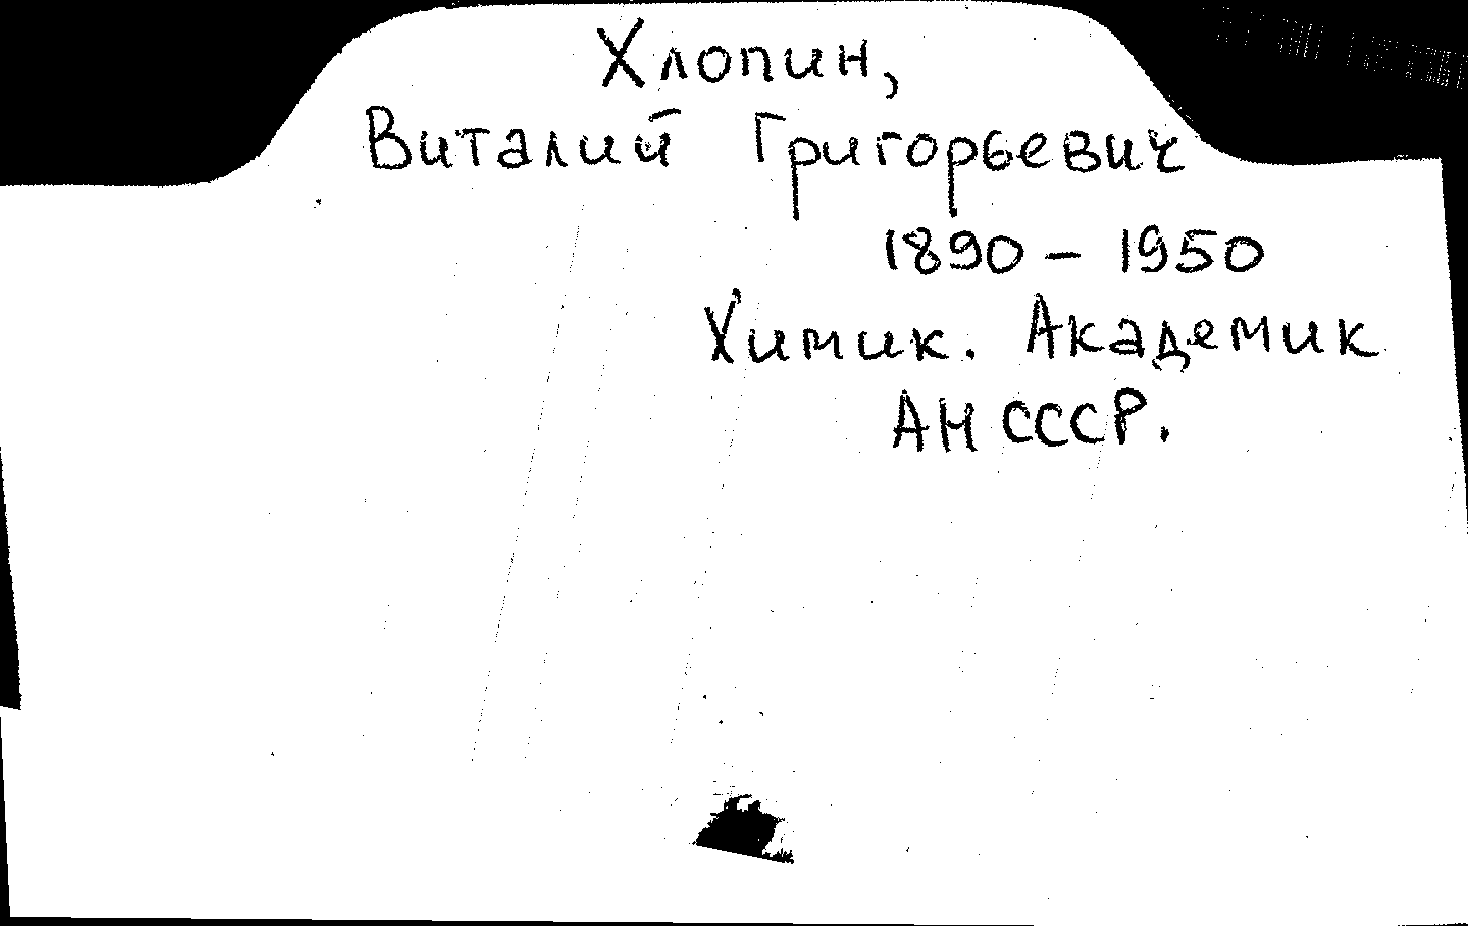 Хлопин,
Виталий Григорьевич
1890 – 1950
Химик. Академик
АН СССР.